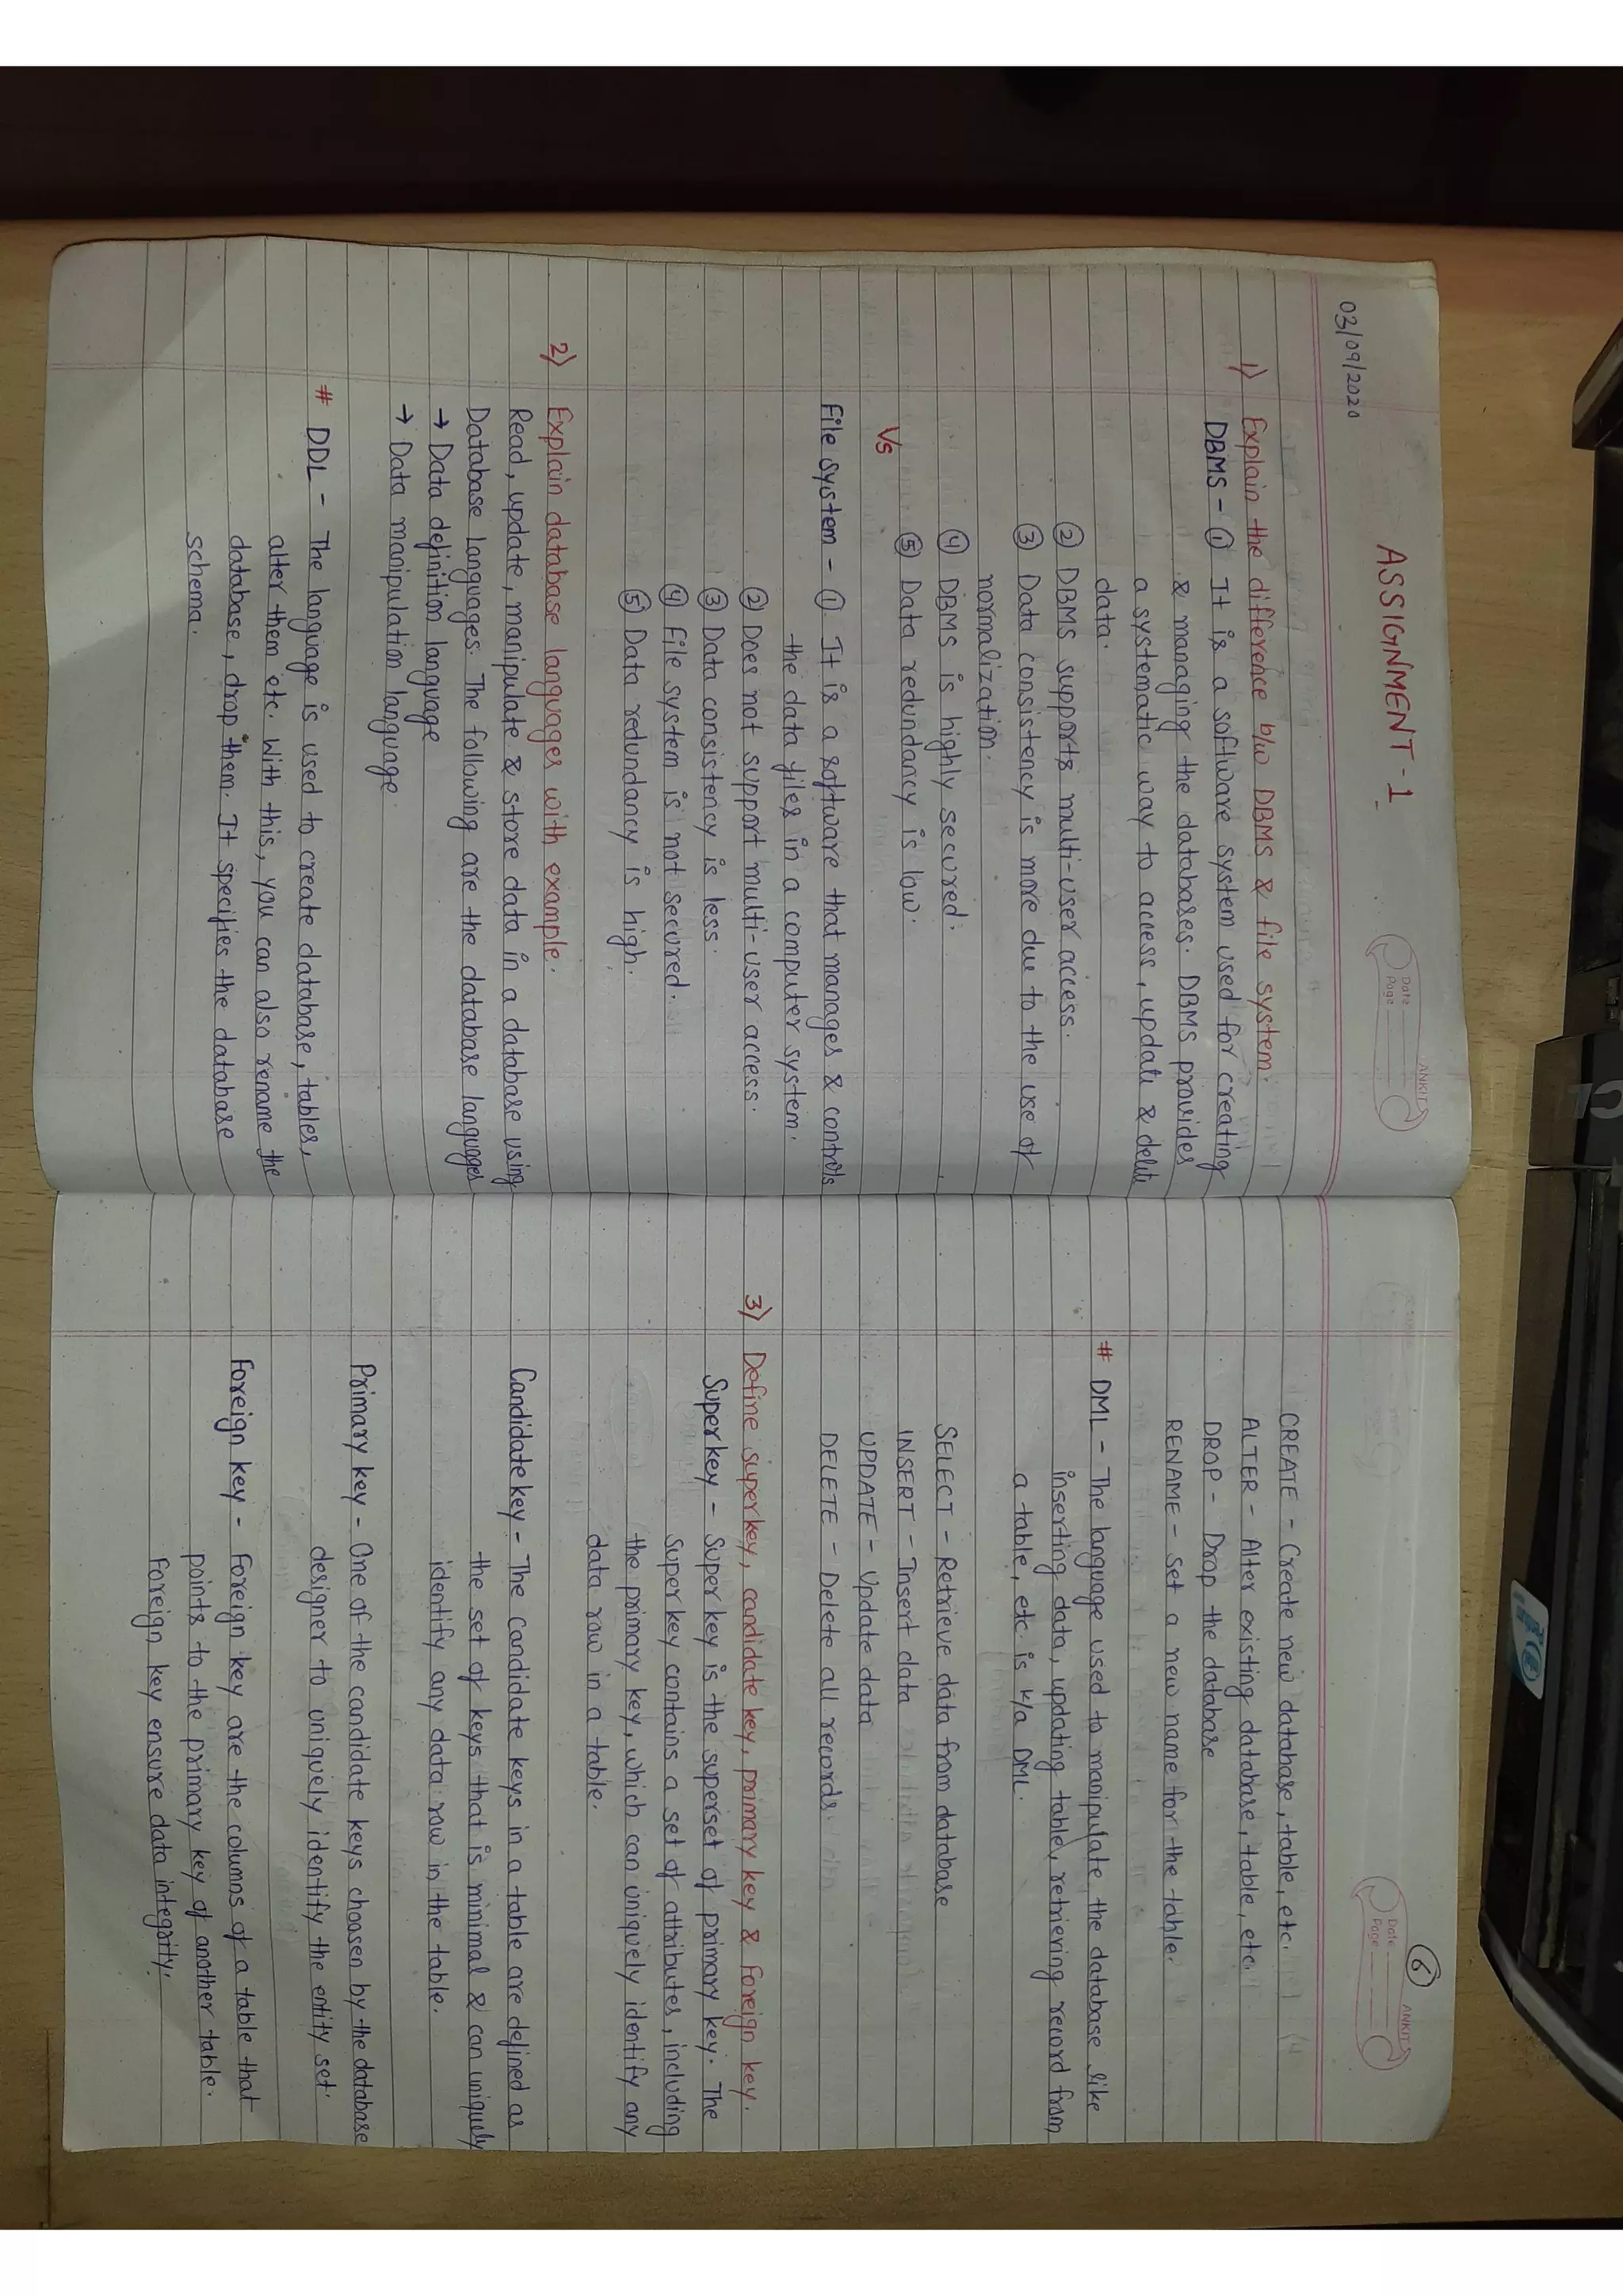 03/09/2020
ASSIGNMENT-1
Date
Page
ANKIT
1) Explain the difference b/w DBMS & file system.
DBMS - ① It is a software system used for creating
& managing the databases. DBMS provides
a systematic way to access, update & delete
data.
② DBMS supports multi-user access.
③ Data consistency is more due to the use of
normalization.
④ DBMS is highly secured.
⑤ Data redundancy is low.
Vs
File system - ① It is a software that manages & controls
the data files in a computer system.
② Does not support multi-user access.
③ Data consistency is less.
④ File system is not secured.
⑤ Data redundancy is high.
2) Explain database languages with example.
Read, update, manipulate & store data in a database using
Database languages. The following are the database languages
→ Data definition language
→ Data manipulation language
# DDL - The language is used to create database, tables,
alter them etc. With this, you can also rename the
database, drop them. It specifies the database
schema.
6
Date
Page
ANKIT
CREATE - Create new database, table, etc.
ALTER - Alter existing database, table, etc.
DROP - Drop the database
RENAME - set a new name for the table.
# DML - The language used to manipulate the database like
inserting data, updating table, retrieving record from
a table, etc. is k/a DML.
SELECT - Retrieve data from database
INSERT - Insert data
UPDATE - Update data
DELETE - Delete all records
3) Define superkey, candidate key, primary key & foreign key.
Superkey - Superkey is the superset of primary key. The
superkey contains a set of attributes, including
the primary key, which can uniquely identify any
data row in a table.
Candidate key - The candidate keys in a table are defined as
the set of keys that is minimal & can uniquely
identify any data row in the table.
Primary key - One of the candidate keys choosen by the database
designer to uniquely identify the entity set.
Foreign key - Foreign key are the columns of a table that
points to the primary key of another table.
Foreign key ensure data integrity.